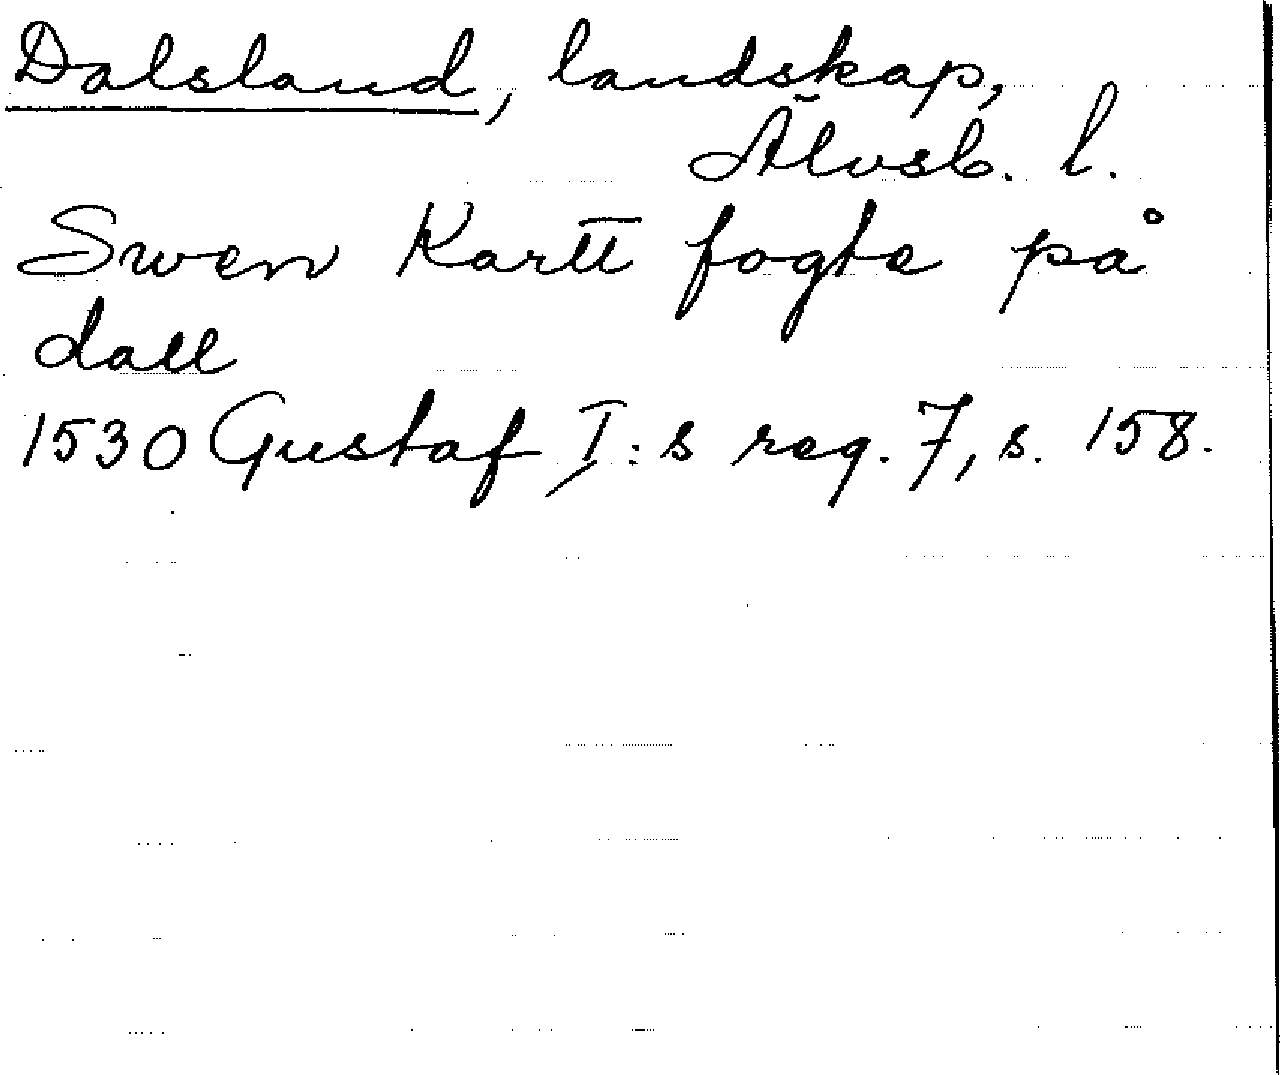 Dalsland, landskap,
Älvsb. l.
Swen Kartt fogte på
dall
1530 Gustaf I:s reg. 7, s. 158.